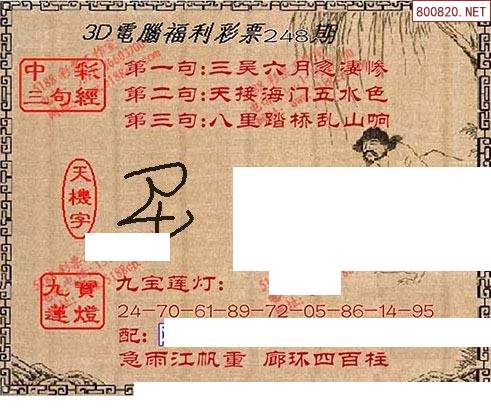 800820.NET
3D電腦福利彩票248期
中彩
三句經
第一句:三吴六月忽凄惨
第二句:天接海门五水色
第三句:八里踏桥乱山响
天機字
九寶
蓮燈
九宝莲灯:
24-70-61-89-72-05-86-14-95
配:
急雨江帆重 廊环四百柱